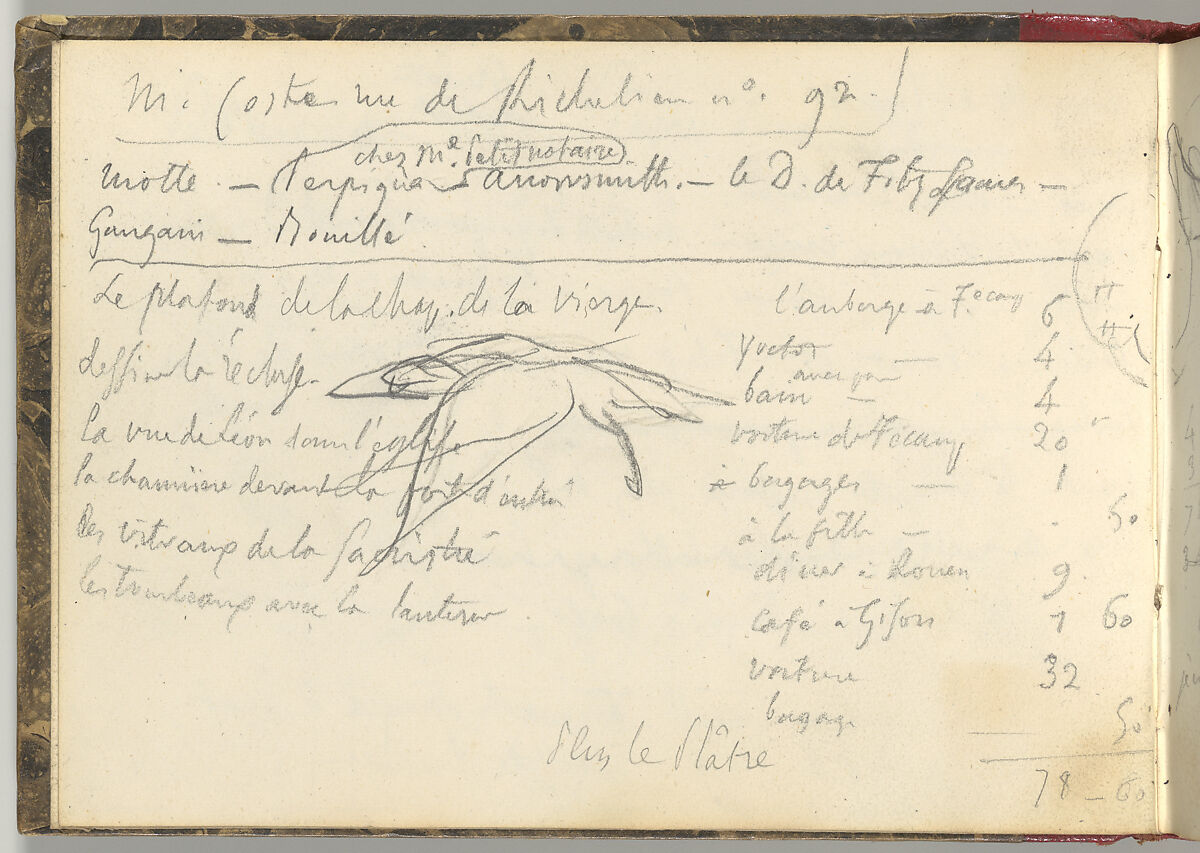 M. Coste rue de Richelieu nº. 92.
chez Me. Petit notaire
Motte. — Perpigna — le D. de Fitz James —
Gaugain — Mouillé
Le plafond de la chap. de la Vierge.
dessin la
la vue de l'église
la devant la porte d'entrée
les vitraux de la Sacristie
les tombeaux avec la lanterne
l'auberge à Fécamp 6
— 4
bain — 4
voiture de Fécamp 20
bagages — 1
à la fille — . 50
dîner à Rouen 9
café à Gisors 1 60
voiture 32
bagage 50
78 — 60
Plus le Plâtre